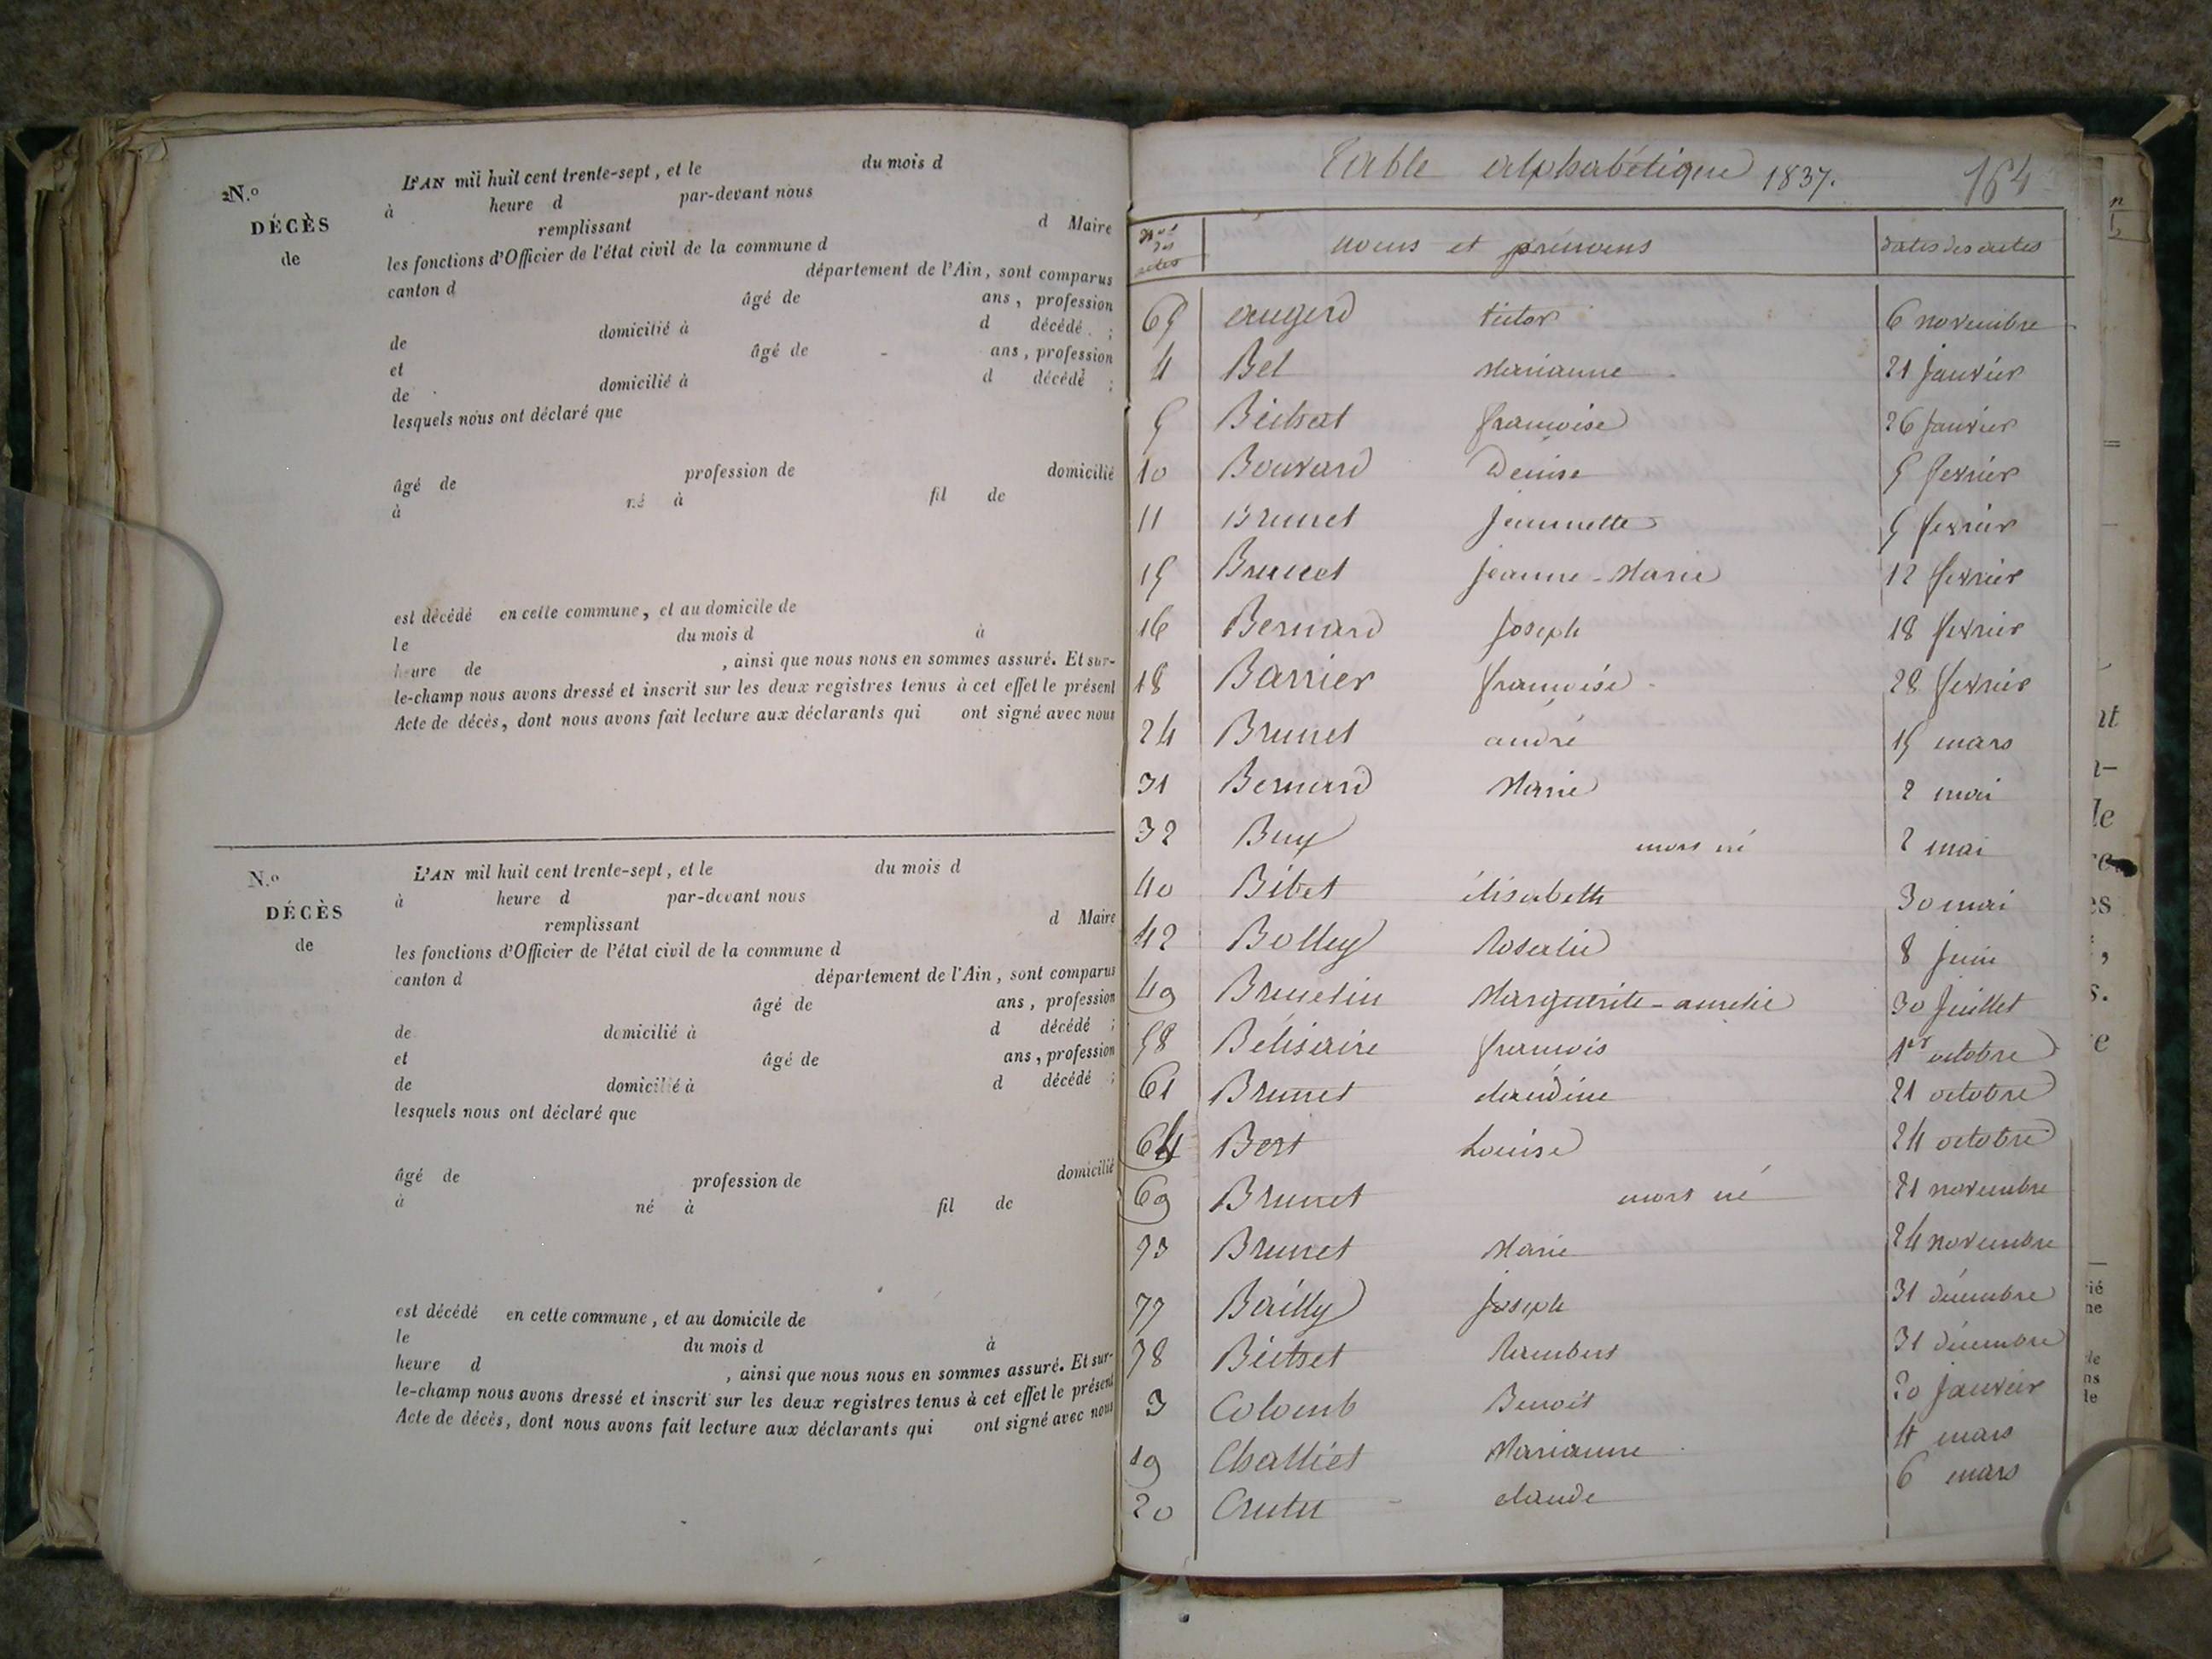 N.º
DÉCÈS
de
L'AN mil huit cent trente-sept, et le du mois d
à heure d par-devant nous
remplissant d Maire
les fonctions d'Officier de l'état civil de la commune d
canton d département de l'Ain, sont comparus
âgé de ans, profession
de domicilié à d décédé ;
et âgé de ans, profession
de domicilié à d décédé ;
lesquels nous ont déclaré que
âgé de profession de domicilié
à né à fil de
est décédé en cette commune, et au domicile de
le du mois d à
heure de , ainsi que nous nous en sommes assuré. Et sur-
le-champ nous avons dressé et inscrit sur les deux registres tenus à cet effet le présent
Acte de décès, dont nous avons fait lecture aux déclarants qui ont signé avec nous
N.º
DÉCÈS
de
L'AN mil huit cent trente-sept, et le du mois d
à heure d par-devant nous
remplissant d Maire
les fonctions d'Officier de l'état civil de la commune d
canton d département de l'Ain, sont comparus
âgé de ans, profession
de domicilié à d décédé ;
et âgé de ans, profession
de domicilié à d décédé ;
lesquels nous ont déclaré que
âgé de profession de domicilié
à né à fil de
est décédé en cette commune, et au domicile de
le du mois d à
heure d , ainsi que nous nous en sommes assuré. Et sur-
le-champ nous avons dressé et inscrit sur les deux registres tenus à cet effet le présent
Acte de décès, dont nous avons fait lecture aux déclarants qui ont signé avec nous
Table alphabétique 1837. 164
Nos des actes noms et prénoms dates des actes
65 augerd victor 6 novembre
4 Bel Marianne 21 janvier
5 françoise 26 janvier
10 Bouvard Denise 5 fevrier
11 Brunet jeannette 5 fevrier
15 Brunet jeanne-Marie 12 fevrier
16 Bernard joseph 18 fevrier
18 Barrier françoise 28 fevrier
24 Brunet andré 15 mars
31 Bernard Marie 2 mai
32 Buy mort né 2 mai
40 Bibet élisabeth 30 mai
42 Bolley Rosalie 8 juin
49 Brunelin Marguerite-aurelie 30 juillet
58 Bélisaire françois 1er octobre
61 Brunet claudine 21 octobre
64 Bert Louise 24 octobre
69 Brunet mort né 21 novembre
73 Brunet Marie 24 novembre
77 Bailly joseph 31 décembre
78 Rambert 31 décembre
3 Colomb Benoit 20 janvier
19 Challiet Marianne 4 mars
20 claude 6 mars